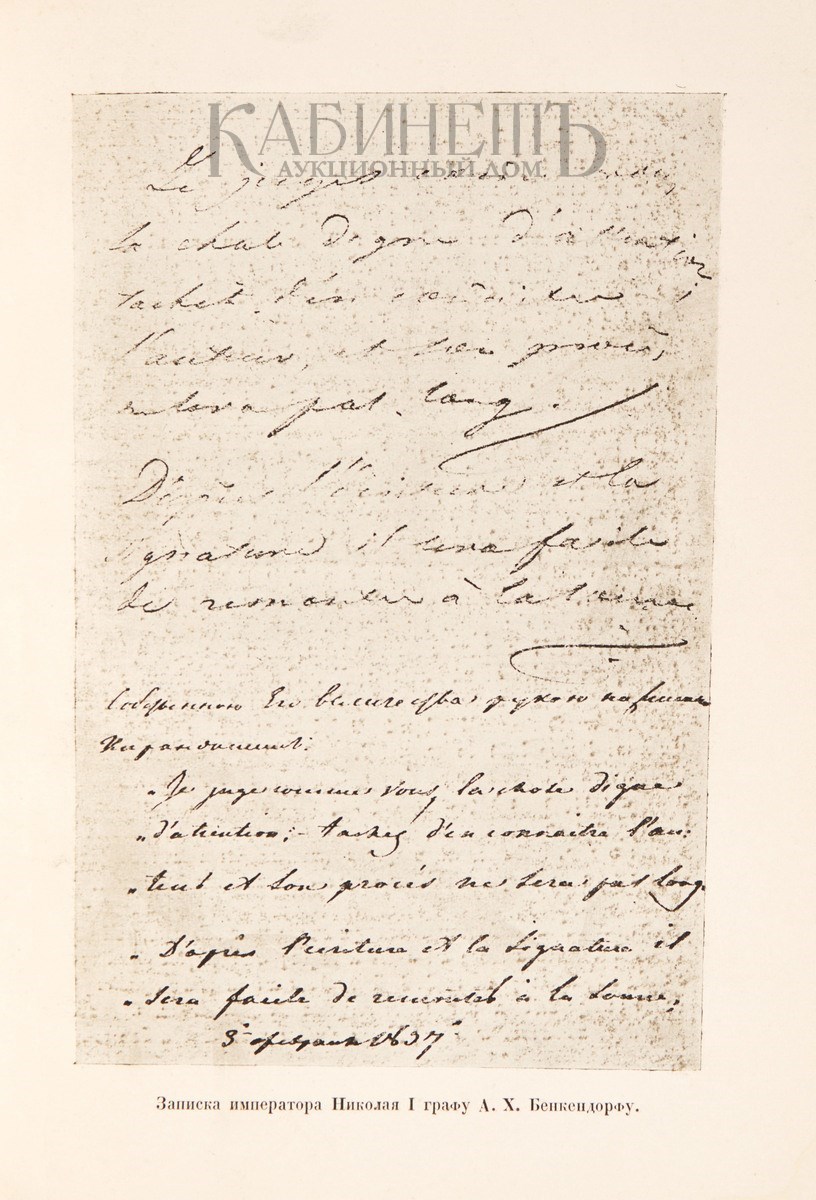 КАБИНЕТЪ
АУКЦИОННЫЙ ДОМ
Je juge comme vous
la chose digne d'attention
tachez d'en connaitre
l'auteur, et son procès
ne sera pas long.
D'après l'écriture et la
signature il sera facile
de remonter à la source
Собственною Его величества рукою написано
Карандашемъ:
„Je juge comme vous, la chose digne
„d'attention; tachez d'en connaitre l'au-
„teur et son procès ne sera pas long.
„D'après l'écriture et la signature il
„sera facile de remonter à la source,
3 февраля 1837
Записка императора Николая I графу А. Х. Бенкендорфу.